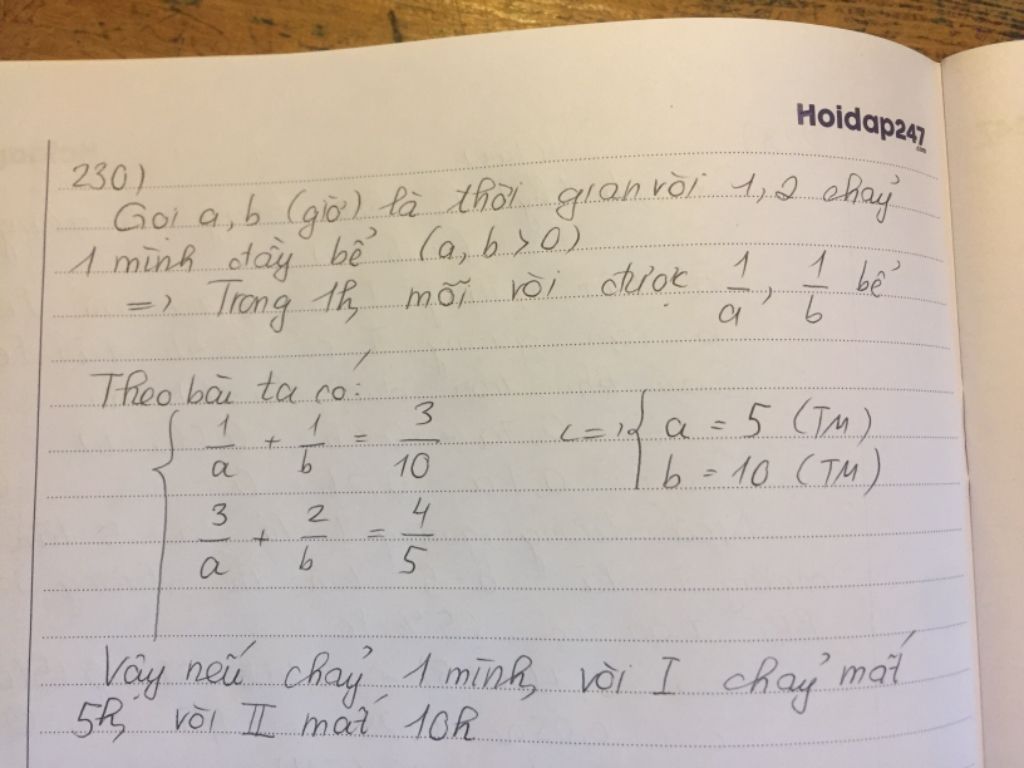 Hoidap247
.com
230)
Gọi a, b (giờ) là thời gian vòi 1, 2 chảy
1 mình đầy bể (a, b > 0)
=> Trong 1h, mỗi vòi được 1/a, 1/b bể
Theo bài ta có:
{ 1/a + 1/b = 3/10 <=> { a = 5 (TM)
b = 10 (TM)
3/a + 2/b = 4/5
Vậy nếu chảy 1 mình, vòi I chảy mất
5h, vòi II mất 10h